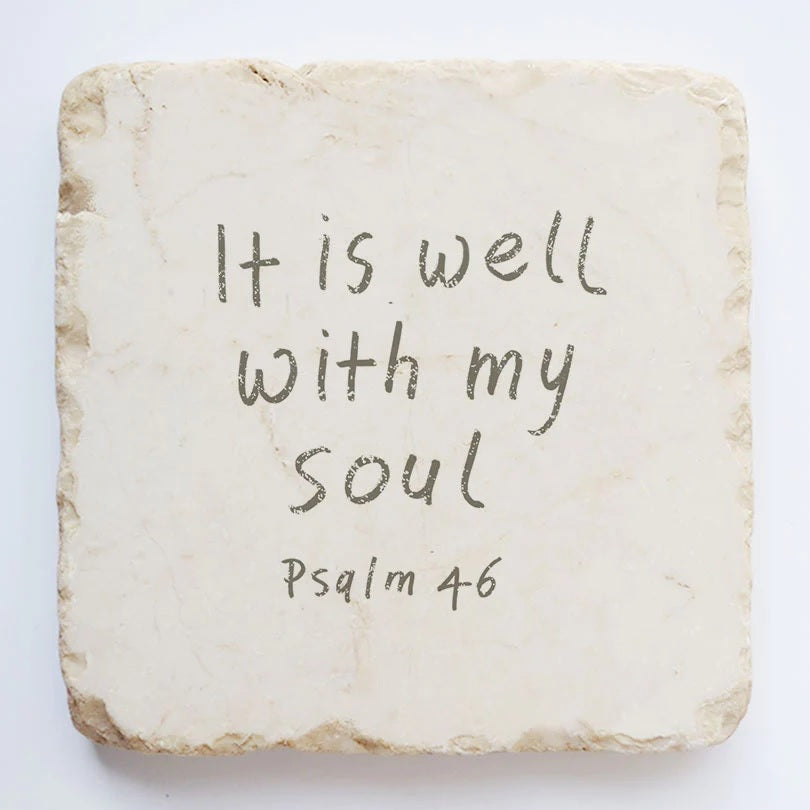 It is well
with my
soul
Psalm 46